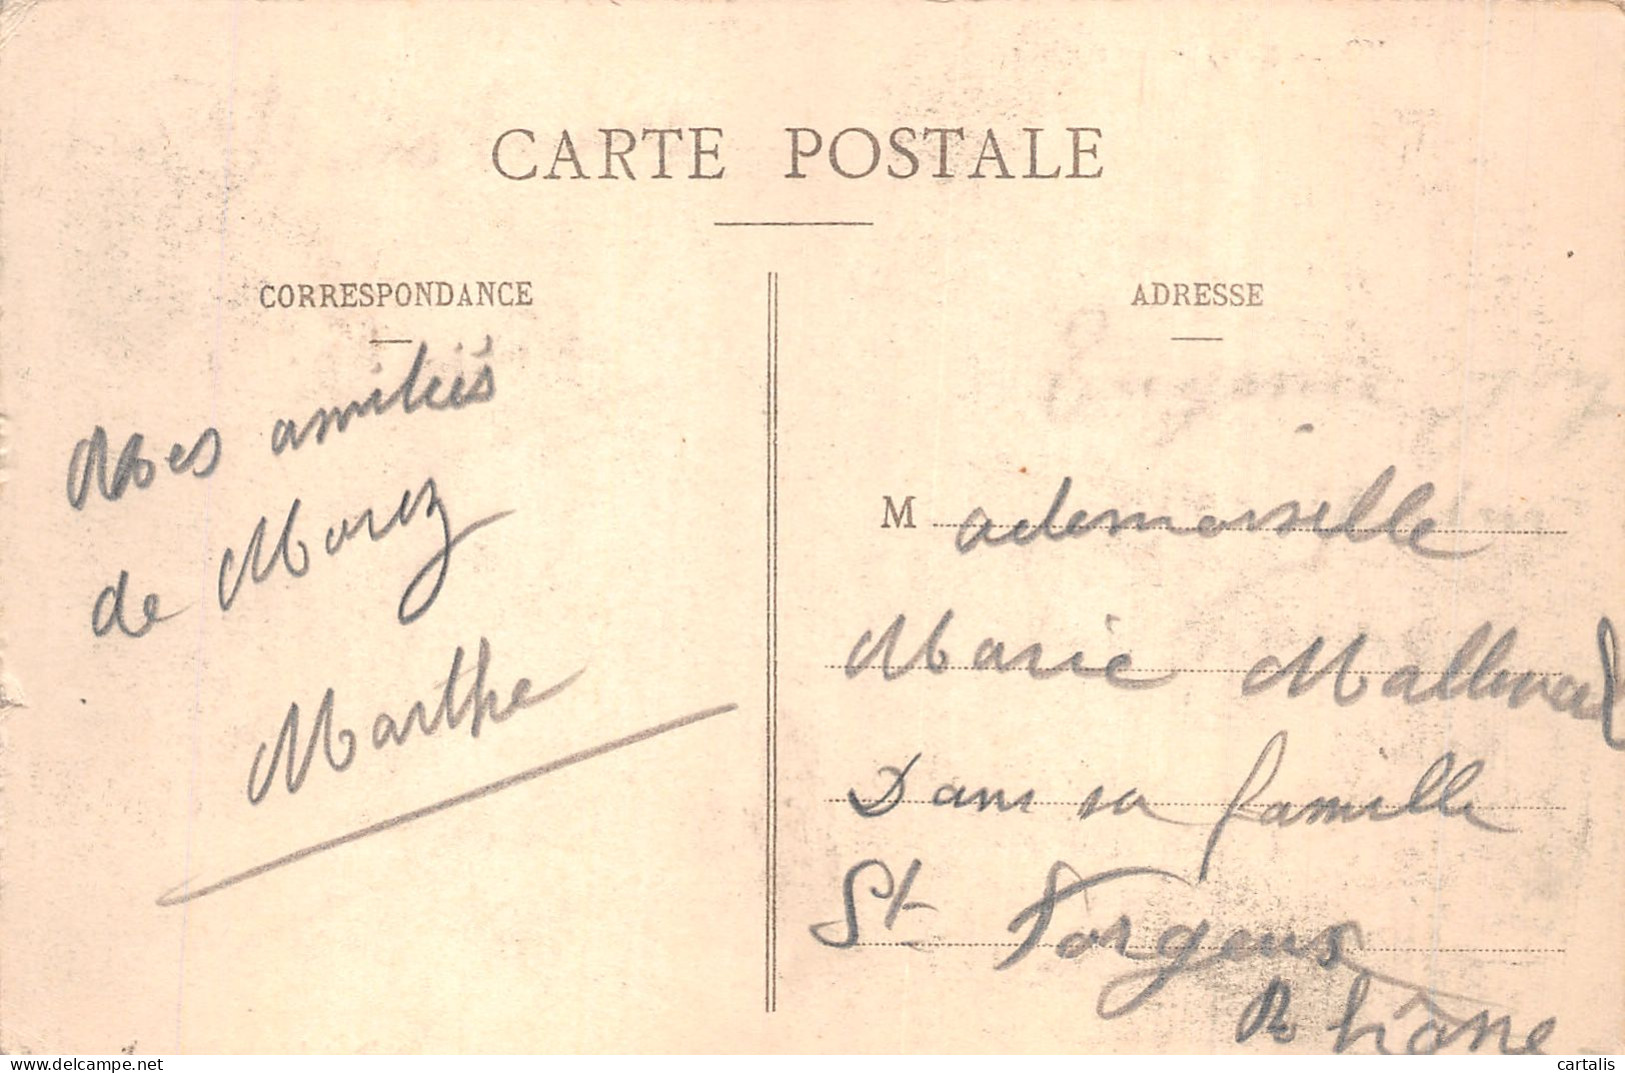 CARTE POSTALE
CORRESPONDANCE
Mes amitiés
de Morez
Marthe
ADRESSE
M ademoiselle
Marie
Dans sa famille
St Forgeux
Rhône
cartalis